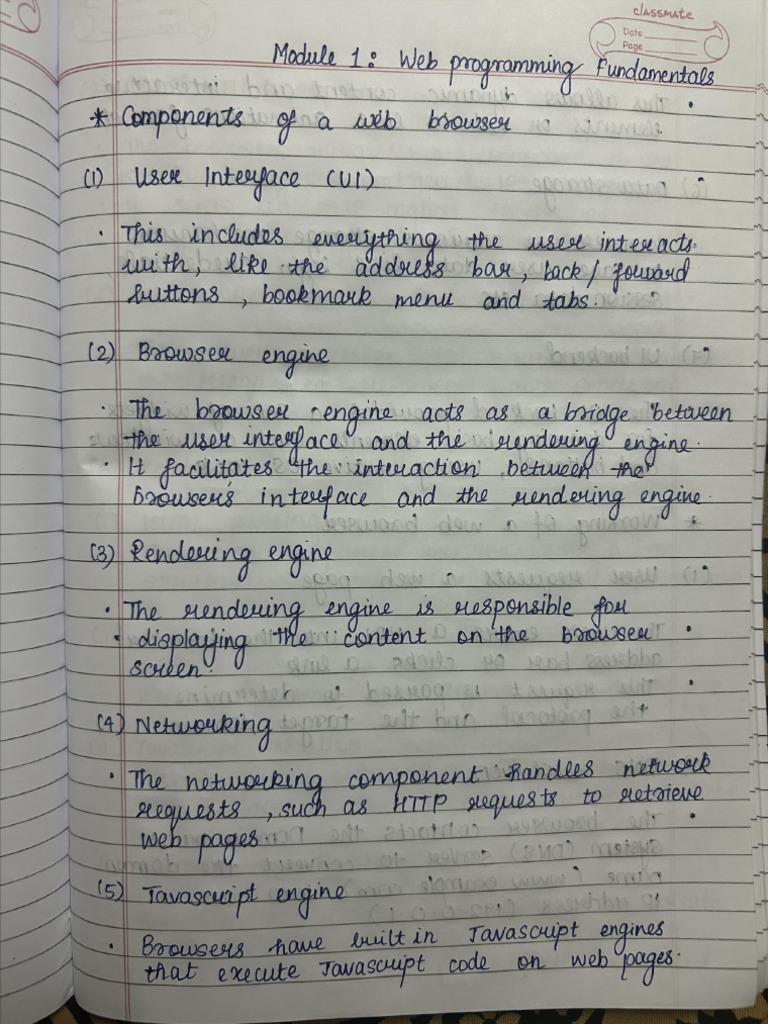 classmate
Date
Page
Module 1: Web programming Fundamentals
* Components of a web browser
(1) User Interface (UI)
· This includes everything the user interacts
with, like the address bar, back/foward
buttons, bookmark menu and tabs.
(2) Browser engine
· The browser engine acts as a bridge between
the user interface and the rendering engine.
· It facilitates the interaction between the
browser's interface and the rendering engine.
(3) Rendering engine
· The rendering engine is responsible for
displaying the content on the browser
screen.
(4) Networking
· The networking component handles network
requests, such as HTTP requests to retrieve
web pages.
(5) Javascript engine
· Browsers have built in Javascript engines
that execute Javascript code on web pages.